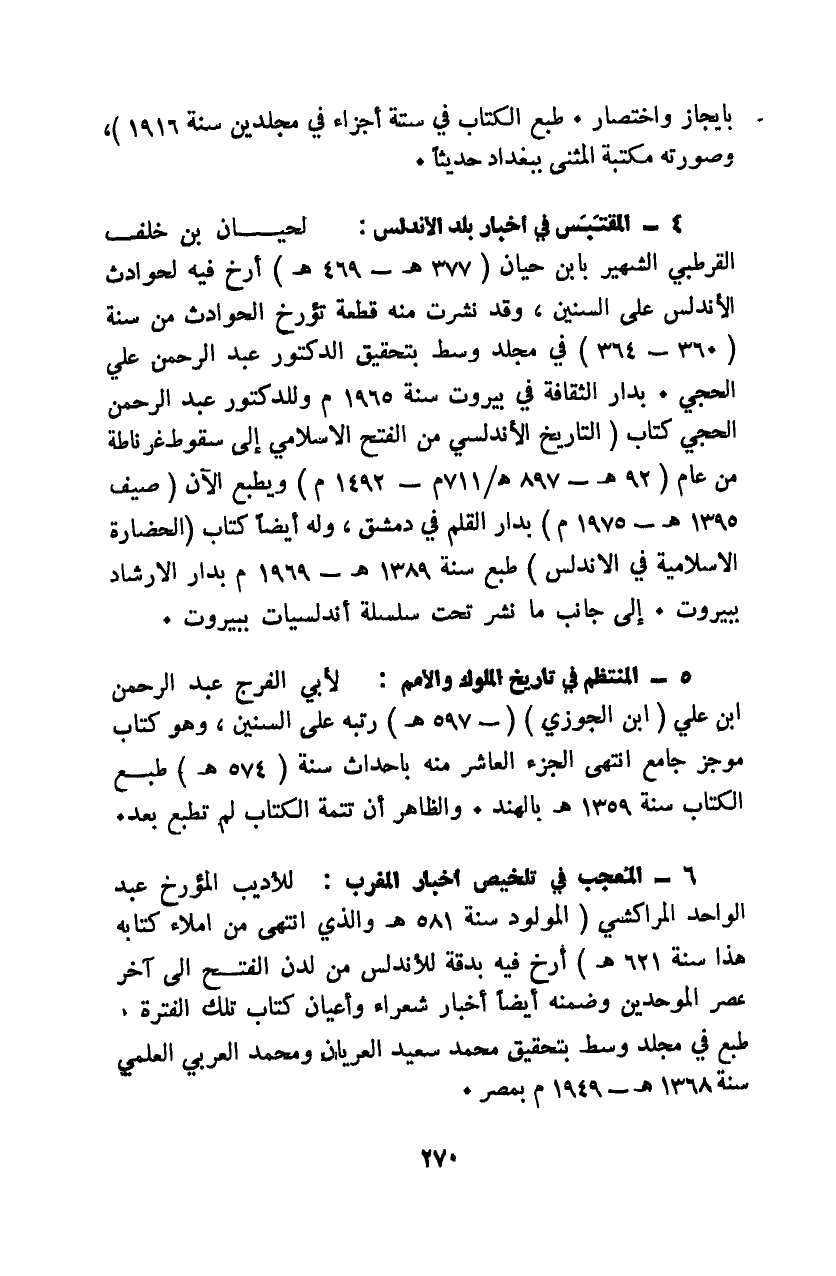 بايجاز واختصار ٠ طبع الكتاب في ستة أجزاء في مجلدين سنة ١٩١٦ )،
وصورته مكتبة المثنى ببغداد حديثاً ٠
٤ ــ المقتبَس في أخبار بلد الأندلس : لحيــــان بن خلفــ
القرطبي الشهير بابن حيان ( ٣٧٧ هـ ــ ٤٦٩ هـ ) أرخ فيه لحوادث
الأندلس على السنين ، وقد نشرت منه قطعة تؤرخ الحوادث من سنة
( ٣٦٠ ــ ٣٦٤ ) في مجلد وسط بتحقيق الدكتور عبد الرحمن علي
الحجي ٠ بدار الثقافة في بيروت سنة ١٩٦٥ م وللدكتور عبد الرحمن
الحجي كتاب ( التاريخ الأندلسي من الفتح الاسلامي إلى سقوط غرناطة
من عام ( ٩٢ هـ ــ ٨٩٧ هـ/٧١١م ــ ١٤٩٢ م ) ويطبع الآن ( صيف
١٣٩٥ هـ ــ ١٩٧٥ م ) بدار القلم في دمشق ، وله أيضاً كتاب (الحضارة
الاسلامية في الاندلس ) طبع سنة ١٣٨٩ هـ ــ ١٩٦٩ م بدار الارشاد
ببيروت ٠ إلى جانب ما نشر تحت سلسلة أندلسيات ببيروت ٠
٥ ــ المنتظم في تاريخ الملوك والأمم : لأبي الفرج عبد الرحمن
ابن علي ( ابن الجوزي ) (ــ ٥٩٧ هـ ) رتبه على السنين ، وهو كتاب
موجز جامع انتهى الجزء العاشر منه باحداث سنة ( ٥٧٤ هـ ) طبـــع
الكتاب سنة ١٣٥٩ هـ بالهند ٠ والظاهر أن تتمة الكتاب لم تطبع بعد٠
٦ ــ المعجب في تلخيص أخبار المغرب : للأديب المؤرخ عبد
الواحد المراكشي ( المولود سنة ٥٨١ هـ والذي انتهى من املاء كتابه
هذا سنة ٦٢١ هـ ) أرخ فيه بدقة للأندلس من لدن الفتـــح الى آخر
عصر الموحدين وضمنه أيضاً أخبار شعراء وأعيان كتاب تلك الفترة ،
طبع في مجلد وسط بتحقيق محمد سعيد العريان ومحمد العربي العلمي
سنة ١٣٦٨ هــــ ١٩٤٩ م بمصر ٠
٢٧٠